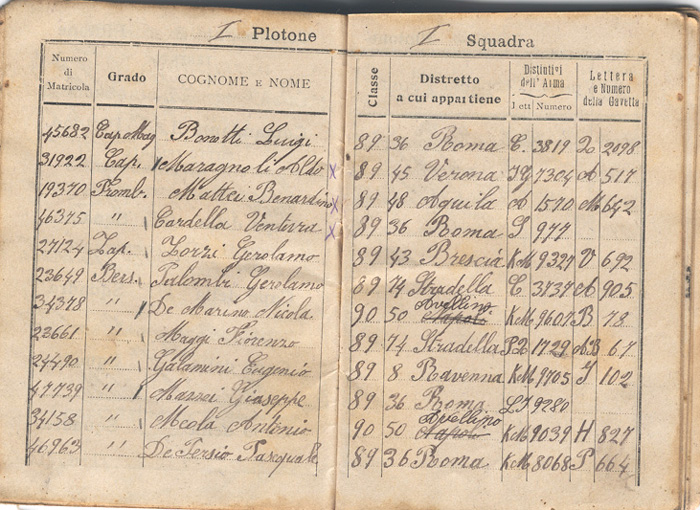 I Plotone I Squadra
Numero di Matricola Grado COGNOME E NOME Classe Distretto a cui appartiene Distintivi dell'Arma Lett Numero Lettera e Numero della Gavetta
45682 Cap. Mag Bonotti Luigi 89 36 Roma C. 3819 D 2098
31922 Cap. Maragnoli Aldo x 89 45 Verona 7304 A 517
19370 Tromb. Mattei Benardino x 89 48 Aquila A 1570 M 642
46375 " Cardella Ventura x 89 36 Roma S 977
27124 Zap. Zorzi Gerolamo 89 43 Brescia KM 9327 V 692
23649 Bers. Palombi Gerolamo 89 74 Stradella C 3737 A 905
34378 " De Marino Nicola 90 50 Avellino Napoli KM 9607 B 78
22661 " Maggi Fiorenzo 89 74 Stradella 1729 AB 67
24490 " Galamini Eugenio 89 8 Ravenna KM 9705 I 102
47739 " Mazzei Giuseppe 89 36 Roma 9280
34158 " Meola Antonio 90 50 Avellino Napoli KM 9039 H 827
46963 " De Tersio Pasquale 89 36 Roma KM 8068 P 664